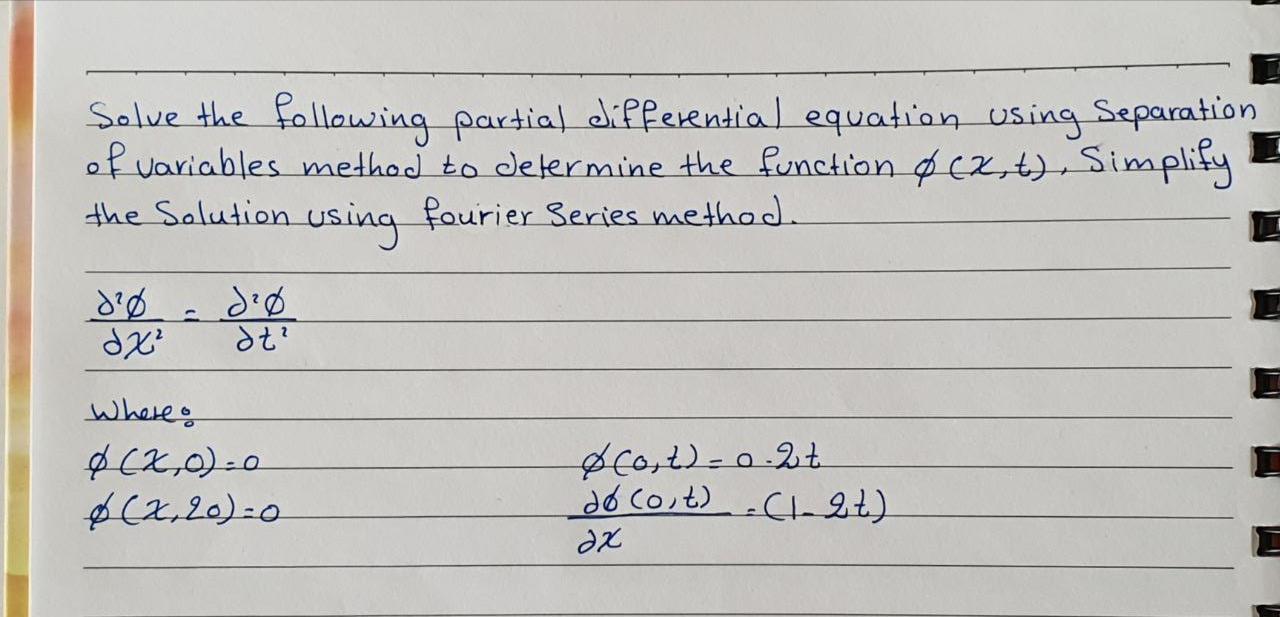 Solve the following partial differential equation using Separation
of variables method to determine the function ϕ(x,t), Simplify
the Solution using fourier Series method.
∂²ϕ/∂x² = ∂²ϕ/∂t²
Where:
ϕ(x,0)=0 ϕ(0,t)=0.2t
ϕ(x,20)=0 ∂ϕ(0,t)/∂x =(1-2t)